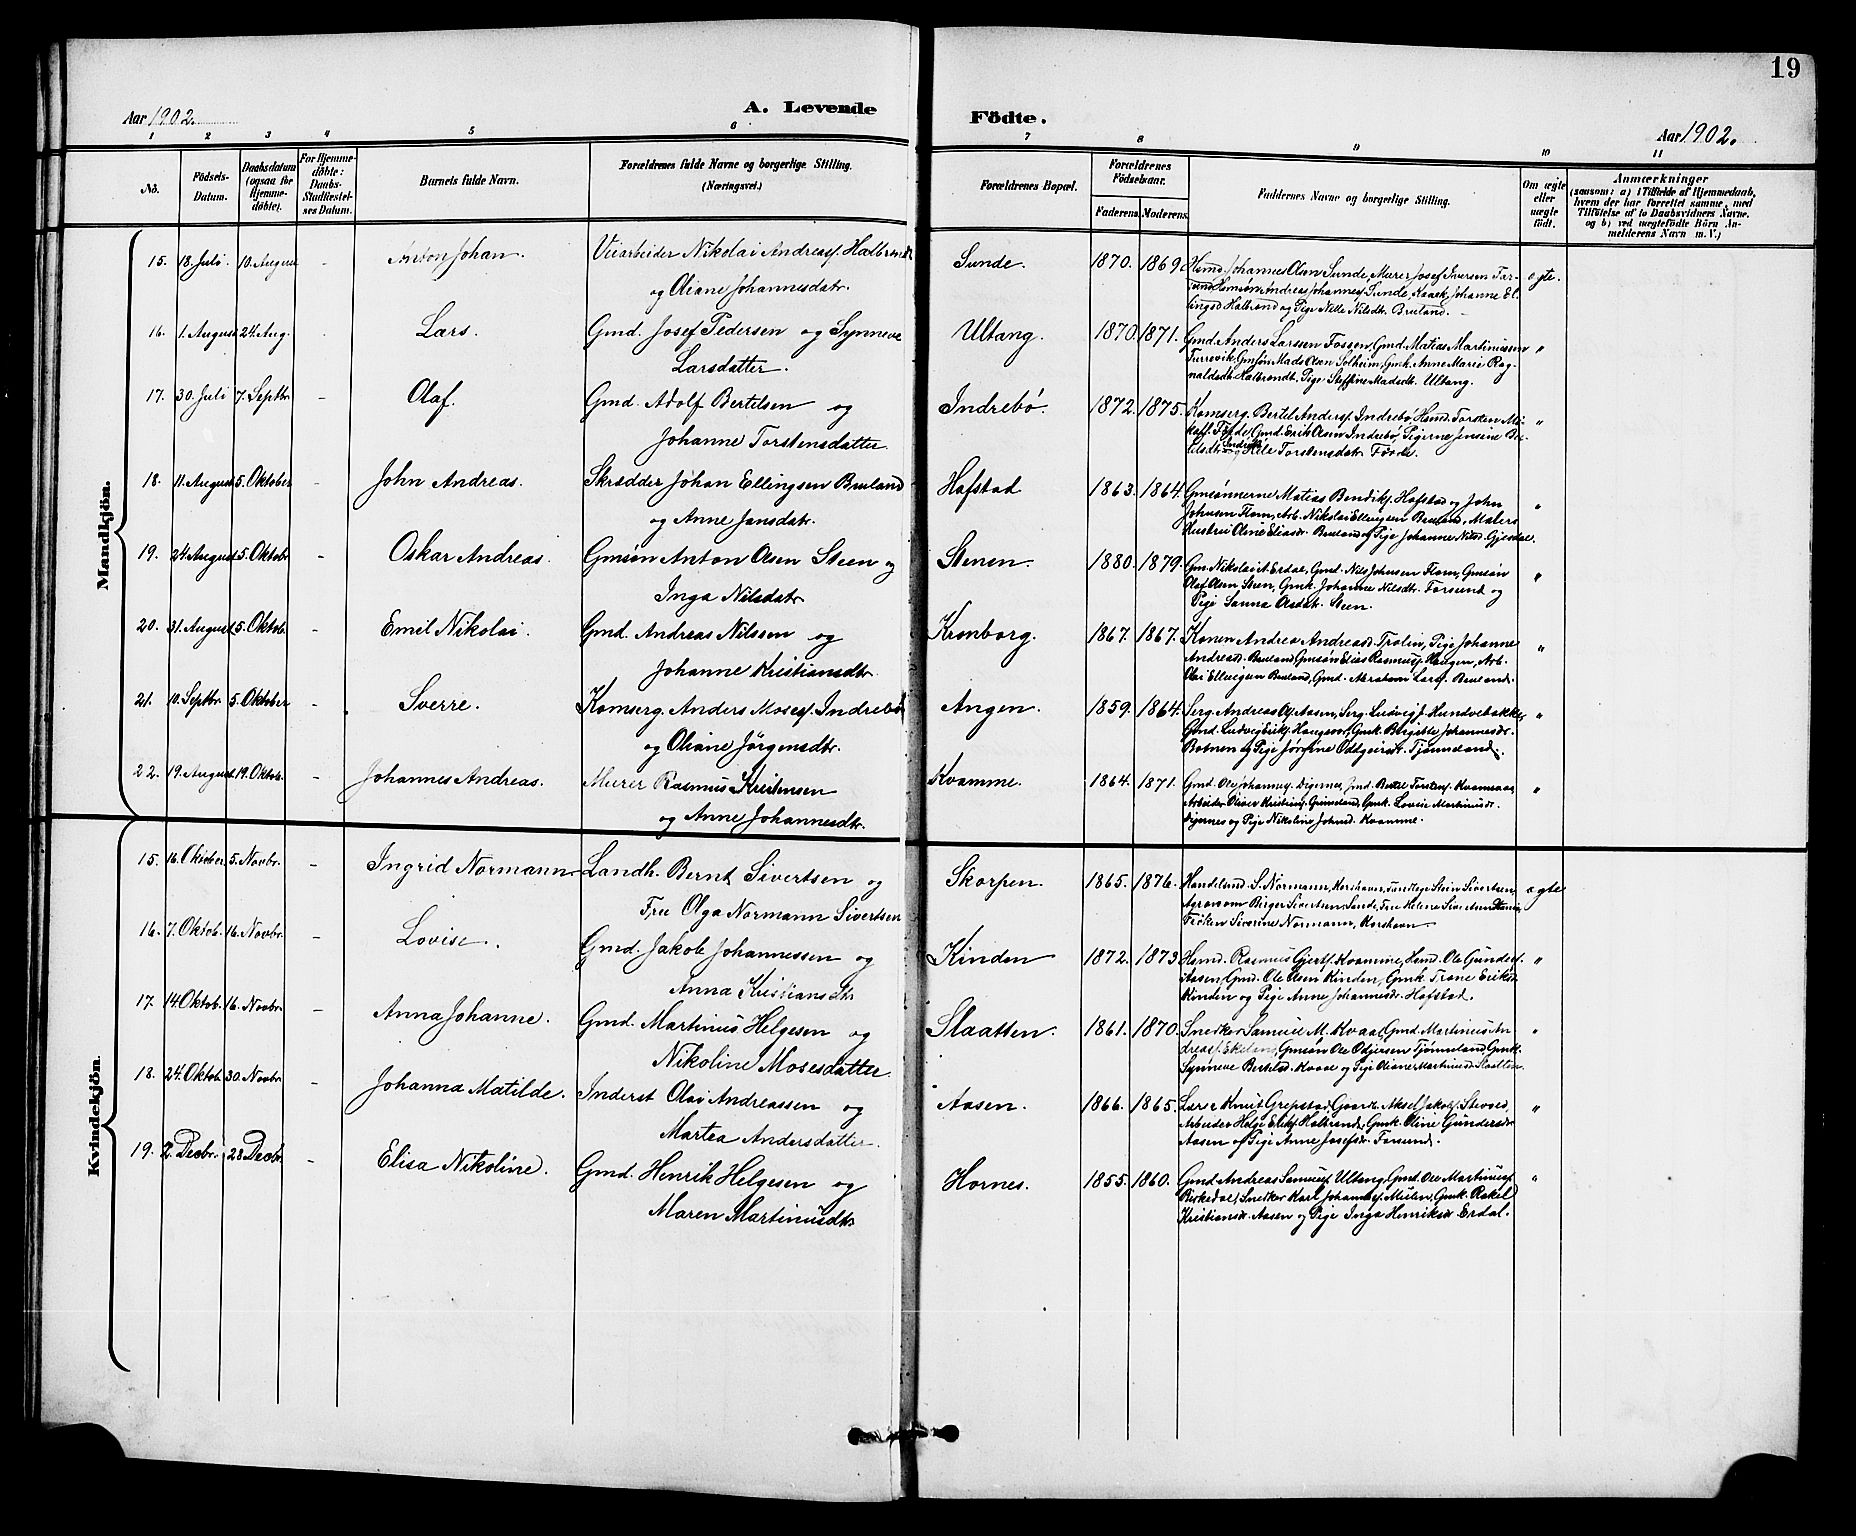 19
Aar 1902.
A. Levende
Födte.
Aar 1902.
1 2 3 4 5 6 7 8 9 10 11
No.
Födsels-Datum.
Daabsdatum (ogsaa for Hjemme-döbte).
For Hjemme-döbte: Daabs-Stadfæstel-ses Datum.
Barnets fulde Navn.
Forældrenes fulde Navne og borgerlige Stilling. (Næringsvei.)
Forældrenes Bopæl.
Forældrenes Födselsaar.
Faderens. Moderens.
Faddernes Navne og borgerlige Stilling.
Om ægte eller uægte födt.
Anmærkninger
(saasom: a) i Tilfælde af Hjemmedaab, hvem der har forrettet samme, med Tilföielse af to Daabsvidners Navne. og b) ved uægtefödte Börn An-melderens Navn m. V.)
Mandkjön.
15. 18. Juli. 10. August - Anton Johan. Veiarbeider Nikolai Andreasf. Halbrendt
og Oliane Johannesdatr.
Sunde. 1870. 1869 Hsmd. Johannes Olsen Sunde, Murer Josef Iversen Far-
sund, Hsmsøn Andreas Johannesf. Sunde, Kaark. Johanne El-
lingsd. Halbrend og Pige Nille Nilsdr. Bruland. ægte.
16. 1. August 24. Aug. - Lars. Gmd. Josef Pedersen og Synneve
Larsdatter.
Ultang. 1870. 1871. Gmd. Anders Larssen Fossen, Gmd. Matias Martinussen
Furevik, Gmsøn Mads Olsen Solheim, Gmk. Anne Marie Rag-
naldsdt. Halbrendt, Pige Steffine Madsdt. Ultang. "
17. 30. Juli 7. Septbr. - Olaf. Gmd. Adolf Bertelsen og
Johanne Torstensdatter.
Indrebö. 1872. 1875. Komserg. Bertel Andersf. Indrebö, Hsmd. Torsten Mi-
kalf. Förde, Gmd. Erik Olsen Indrebö, Pigerne Jensine Ber-
telsdtr. Indrebö og Nele Torstensdatr. Förde. "
18. 11. August 5. Oktober - John Andreas. Skrædder Johan Ellingsen Bruland
og Anne Jonsdatr.
Hafstad 1863. 1864. Gmsønnerne Matias Bendikf. Hafstad og John
Johnsen Flom, Arb. Nikolai Ellingsen Bruland, Malers
Hustru Oline Eliasdr. Bruland og Pige Johanne Nilsd. Gjesdal. "
19. 24. August 5. Oktobr. - Oskar Andreas. Gmsøn Anton Olsen Steen og
Inga Nilsdatr.
Stenen. 1880. 1879. Gm. Nikolai A. Erdal, Gmd. Nils Johnsen Flom, Gmsøn
Olaf Olsen Steen, Gmk. Johanne Nilsdtr. Farsund og
Pige Sanna Olsdatr. Steen. "
20. 31. August 5. Oktob. - Emil Nikolai. Gmd. Andreas Nilssen og
Johanne Kristiansdtr.
Kronborg. 1867. 1867. Konen Andrea Andreasd. Trolin, Pige Johanne
Andreasd. Bruland, Gmsøn Elias Rasmusf. Haugen, Arb.
Olai Ellingsen Bruland, Gmd. Abraham Larsf. Bruland. "
21. 10. Septbr. 5. Oktober - Sverre. Komserg. Anders Mosesf. Indrebö
og Oliane Jörgensdtr.
Angen. 1859. 1864. Serg. Andreas O. Aasen, Serg. Ludvig J. Hundvebakke,
Gmd. Ludvig Erikf. Haugsvor, Gmk. Birgitte Johannesdr.
Botnen og Pige Jörgine Odtgeirsdr. Tjönneland. "
22. 19. August 19. Oktob. - Johannes Andreas. Murer Rasmus Kristensen
og Anne Johannesdtr.
Kvamme. 1864. 1871. Gmd. Ole Johannesf. Digernes, Gmd. Bertel Torstenf. Kvammsaas,
Arbeider Oliver Kristiansf. Grimeland, Gmk. Lovise Martinusdr.
Digernes og Pige Nikoline Johnsd. Kvamme. "
Kvindekjön.
15. 16. Oktober. 5. Novbr. - Ingrid Normann. Landh. Bernt Sivertsen og
Fru Olga Normann Sivertsen
Skorpen. 1865. 1876. Handelsmd. S. Normann, Korshavn, Landlge Stein Sivertsen,
Agronom Birger Sivertsen Sunde, Fru Helene Sivertsen
Fröken Siverine Normann, Korshavn ægte
16. 7. Oktob. 16. Novbr. - Lovise. Gmd. Jakob Johannessen og
Anna Kristiansdtr.
Kinden 1872. 1873 Hsmd. Rasmus Gjertf. Kvamme, Hsmd. Ole Gundersf.
Aasen, Gmd. Ole Olsen Kinden, Gmk. Trone Eriksd.
Kinden og Pige Anne Johannesdr. Hafstad. "
17. 14. Oktob. 16. Novbr. - Anna Johanne. Gmd. Martinus Helgesen og
Nikoline Mosesdatter.
Slaatten. 1861. 1870. Snedker Samuel M. Kvaal, Gmd. Martinus An-
dreasf. Ekelund, Gmsøn Ole Odgersen Tjönneland, Gmk.
Synneve Bertelsd. Kvaal og Pige Oliane Martinusd. Slaatten. "
18. 24. Oktob. 30. Novbr. - Johanna Matilde. Inderst Olai Andreassen og
Martea Andersdatter.
Aasen. 1866. 1865. Lærer Knut Grepstad, Gaardbr. Aksel Jakobf. Stevved,
Arbeider Helge Elikf. Halbrend, Gmk. Oline Gundersdr.
Aasen og Pige Anne Josefsdr. Farsund. "
19. 2. Decbr. 28. Decbr. - Elisa Nikoline. Gmd. Henrik Helgesen og
Maren Martinusdtr.
Hornes. 1855. 1860. Gmd. Andreas Samuelf. Ultang, Gmd. Ole Martinusf.
Birkedal, Snedker Karl Johannesf. Mülen, Gmk. Rakel
Kristiansdr. Aasen og Pige Inga Henriksd. Erdal. "